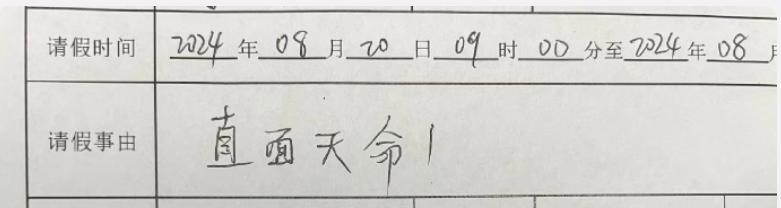 请假时间 2024年08月20日09时00分至2024年08月
请假事由 直面天命!